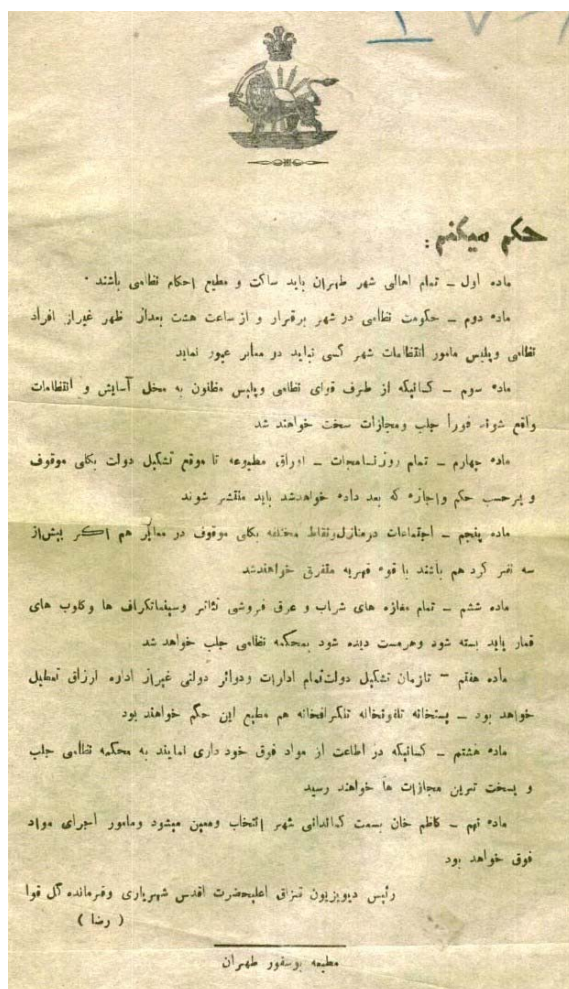 حکم میکنم :
ماده اول ــ تمام اهالی شهر طهران باید ساکت و مطیع احکام نظامی باشند ۰
ماده دوم ــ حکومت نظامی در شهر برقرار و از ساعت هشت بعداز ظهر غیراز افراد
نظامی و پلیس مامور انتظامات شهر کسی نباید در معابر عبور نماید
ماده سوم ــ کسانیکه از طرف قوای نظامی و پلیس مظنون به مخل آسایش و انتظامات
واقع شوند فوراً جلب و مجازات سخت خواهند شد
ماده چهارم ــ تمام روزنامجات ــ اوراق مطبوعه تا موقع تشکیل دولت بکلی موقوف
و برحسب حکم و اجازه که بعد داده خواهدشد باید منتشر شوند
ماده پنجم ــ اجتماعات درمنازل ونقاط مختلفه بکلی موقوف در معابر هم اگر بیش از
سه نفر گرد هم باشند با قوه قهریه متفرق خواهندشد
ماده ششم ــ تمام مغازه های شراب و عرق فروشی تئاتر وسینماتگراف ها وکلوب های
قمار باید بسته شود وهرمست دیده شود بمحکمه نظامی جلب خواهد شد
ماده هفتم ــ تازمان تشکیل دولت تمام ادارات ودوائر دولتی غیراز اداره ارزاق تعطیل
خواهد بود ــ پستخانه تلفونخانه تلگرافخانه هم مطیع این حکم خواهند بود
ماده هشتم ــ کسانیکه در اطاعت از مواد فوق خود داری نمایند به محکمه نظامی جلب
و بسخت ترین مجازات ها خواهند رسید
ماده نهم ــ کاظم خان بسمت کماندانی شهر انتخاب ومعین میشود ومامور اجرای مواد
فوق خواهد بود
رئیس دیویزیون قزاق اعلیحضرت اقدس شهریاری وفرمانده کل قوا
( رضا )
مطبعه بوسفور طهران